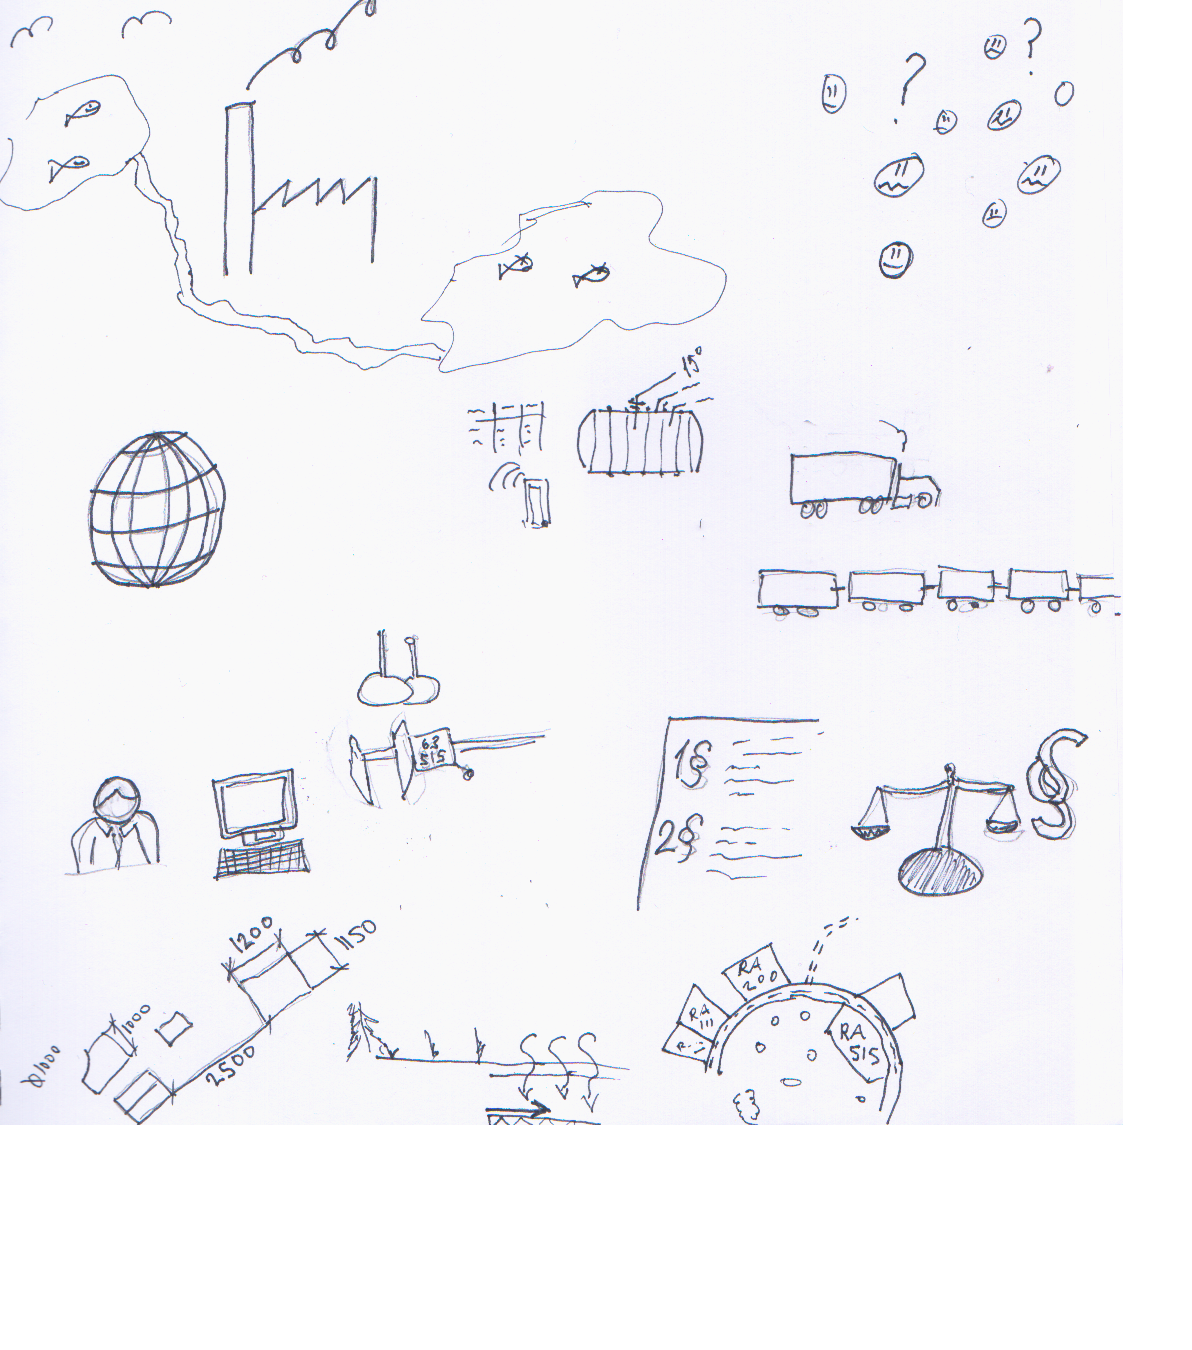 ?
?
15°
63
515
1§
2§
§
1200
1150
1000
2500
RA
200
RA
111
RA
515